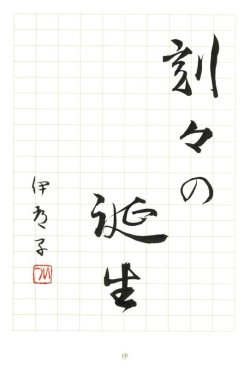 刻々の
誕生
伊都子